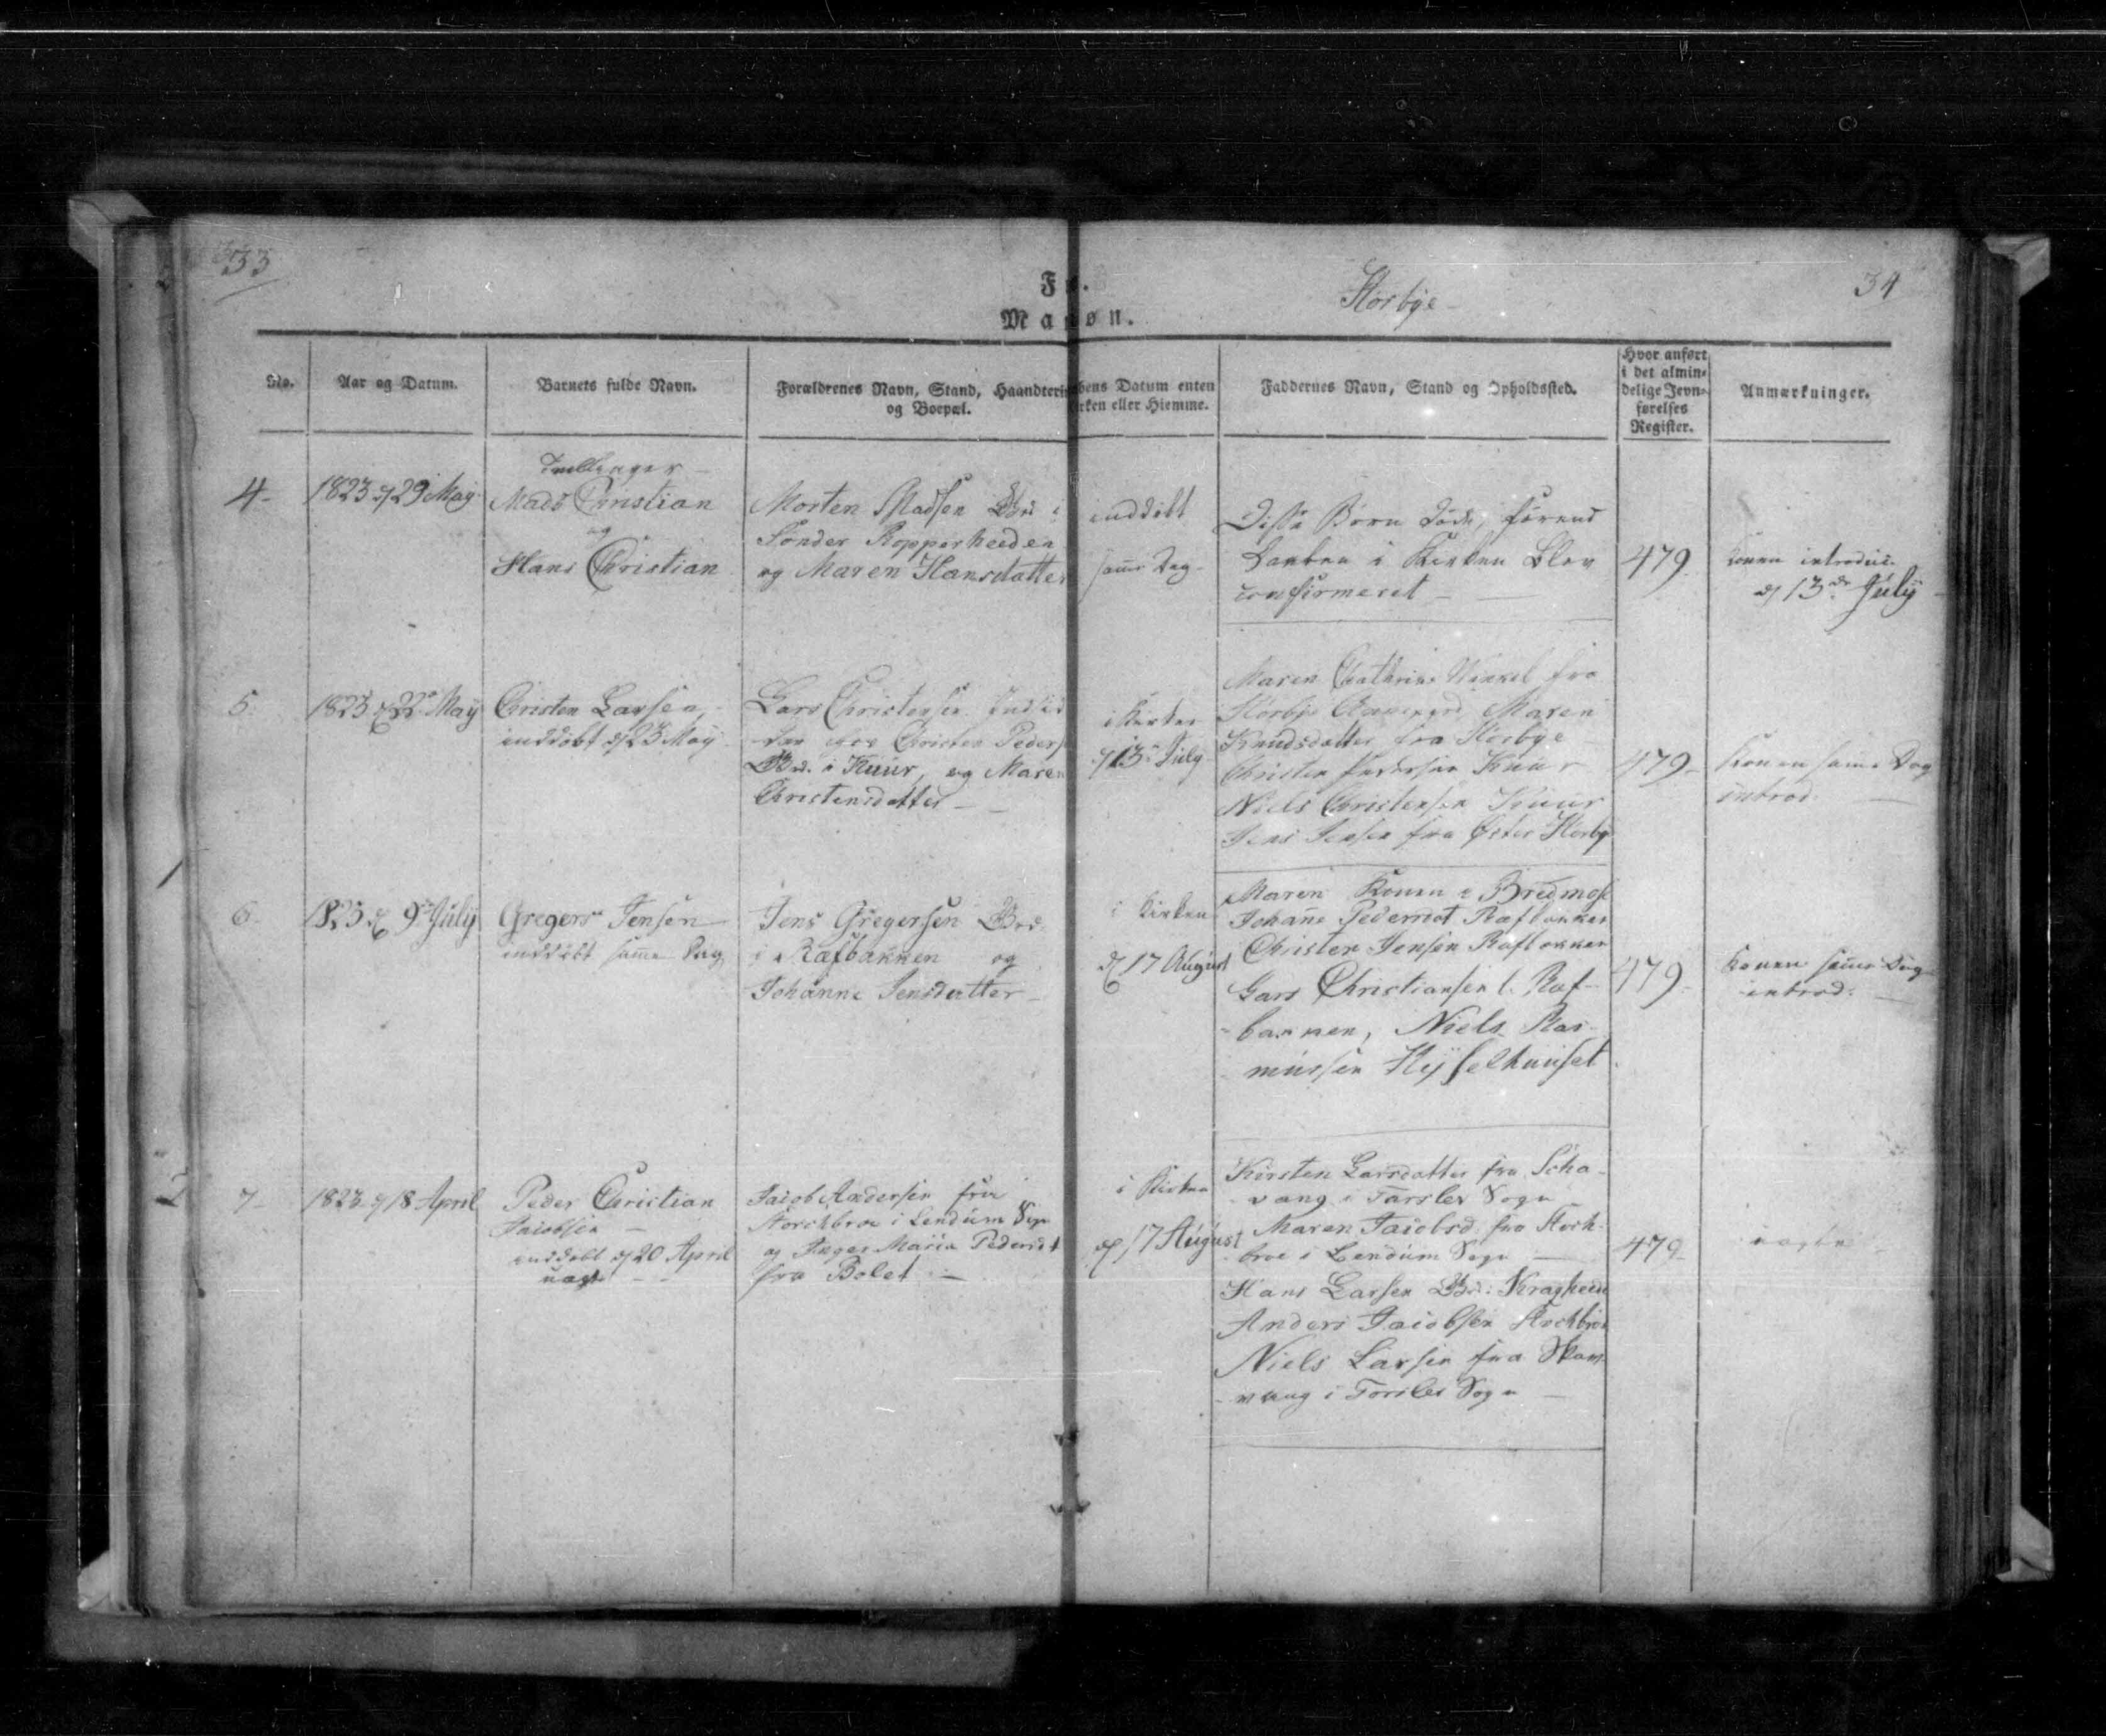 33
34
Hørbye
Fø.
Mandkøn.
No.
Aar og Datum.
Barnets fulde Navn.
Forældrenes Navn, Stand, Haandteri
og Boepæl.
bens Datum enten
irken eller Hiemme.
Faddernes Navn, Stand og Opholdssted.
Hvor anført
i det almin-
delige Jevn-
førelses
Register.
Anmærkninger.
4-
1823 d 29 May
Tvillinger
Mads Christian
og
Hans Christian
Morten Madsen Bd i
Sønder Kopperheeden
og Maren Hansdatter
inddøbt
samme Dag
Disse Børn døde, førend
Daaben i Kirken blev
confirmeret
479
Konen introduc.
d 13de July
5
1823 d 22 May
Christen Larsen,
inddøbt d 23 May
Lars Christensen Indsid
der hos Christen Peders
Bd. i Kuur, og Maren
Christensdatter
i Kirken
d 13 July
Maren Cathrine Winkel fra
Hørbye Maren
Knudsdatter fra Hørbye
Christen Pedersen Kuur
Niels Christensen Kuur
Jens Jensen fra Øster Hørby
479
Konen samme Dag
introd.
6
1823 d 9 July
Gregers Jensen
inddøbt samme Dag
Jens Gregersen Bd
i Ræfbakken og
Johanne Jensdatter
i Kirken
d 17 August
Maren Konen i Bredmose
Johanne Pedersdt Ræfbakken
Christen Jensen Ræfbakken
Lars Christiansen i Ræf-
bakken, Niels Ras-
mussen Kysselhuuset
479
Konen samme Dag
introd.
7
1823 d 18 April
Peder Christian
Jacobsen
inddøbt d 20 April
uægte
Jacob Andersen fra
Storchbroe i Lendum Sogn
og Inger Maria Pedersdt
fra Bolet
i Kirken
d 17 August
Kirsten Larsdatter fra Scha-
vang i Tarslev Sogn
Maren Jacobsd. fra Storch-
broe i Lendum Sogn
Hans Larsen Bd i Kragheede
Anders Jacobsen Storchbroe
Niels Larsen fra Skav
vang i Torslev Sogn
479
uægte